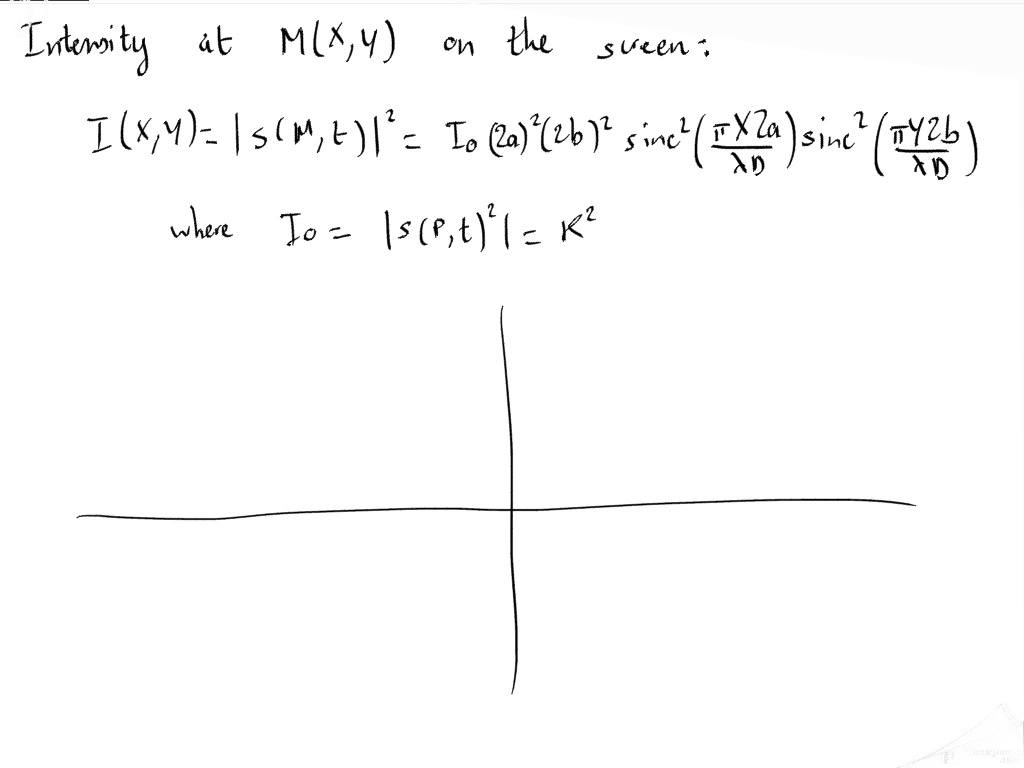 Intensity at M(X,Y) on the screen:
I(X,Y)= |s(M,t)|² = I₀ (2a)²(2b)² sinc²(πX2a/λD) sinc²(πY2b/λD)
where I₀ = |s(P,t)²| = K²